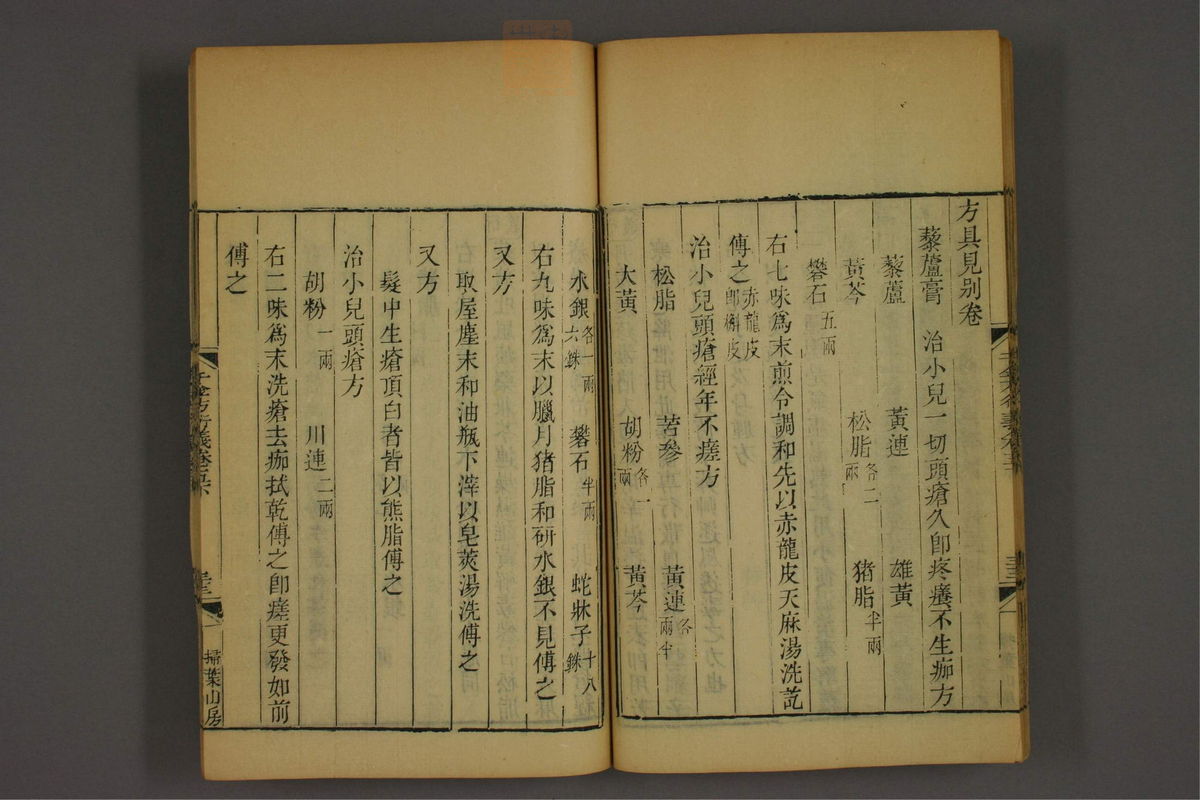 方具見別卷
藜蘆膏 治小兒一切頭瘡久即疼癢不生痂方
藜蘆 黃連 雄黃
黃芩 松脂各二兩 猪脂半兩
礬石五兩
右七味爲末煎令調和先以赤龍皮天麻湯洗訖
傅之赤龍皮即槲皮
治小兒頭瘡經年不瘥方
松脂 苦參 黃連各一兩半
大黃 胡粉各一兩 黃芩
水銀各一兩六銖 礬石半兩 蛇牀子十八銖
右九味爲末以臘月猪脂和研水銀不見傅之
又方
取屋塵末和油瓶下滓以皂莢湯洗傅之
又方
髮中生瘡頂白者皆以熊脂傅之
治小兒頭瘡方
胡粉一兩 川連二兩
右二味爲末洗瘡去痂拭乾傅之即瘥更發如前
傅之
千金方衍義卷五下
掃葉山房